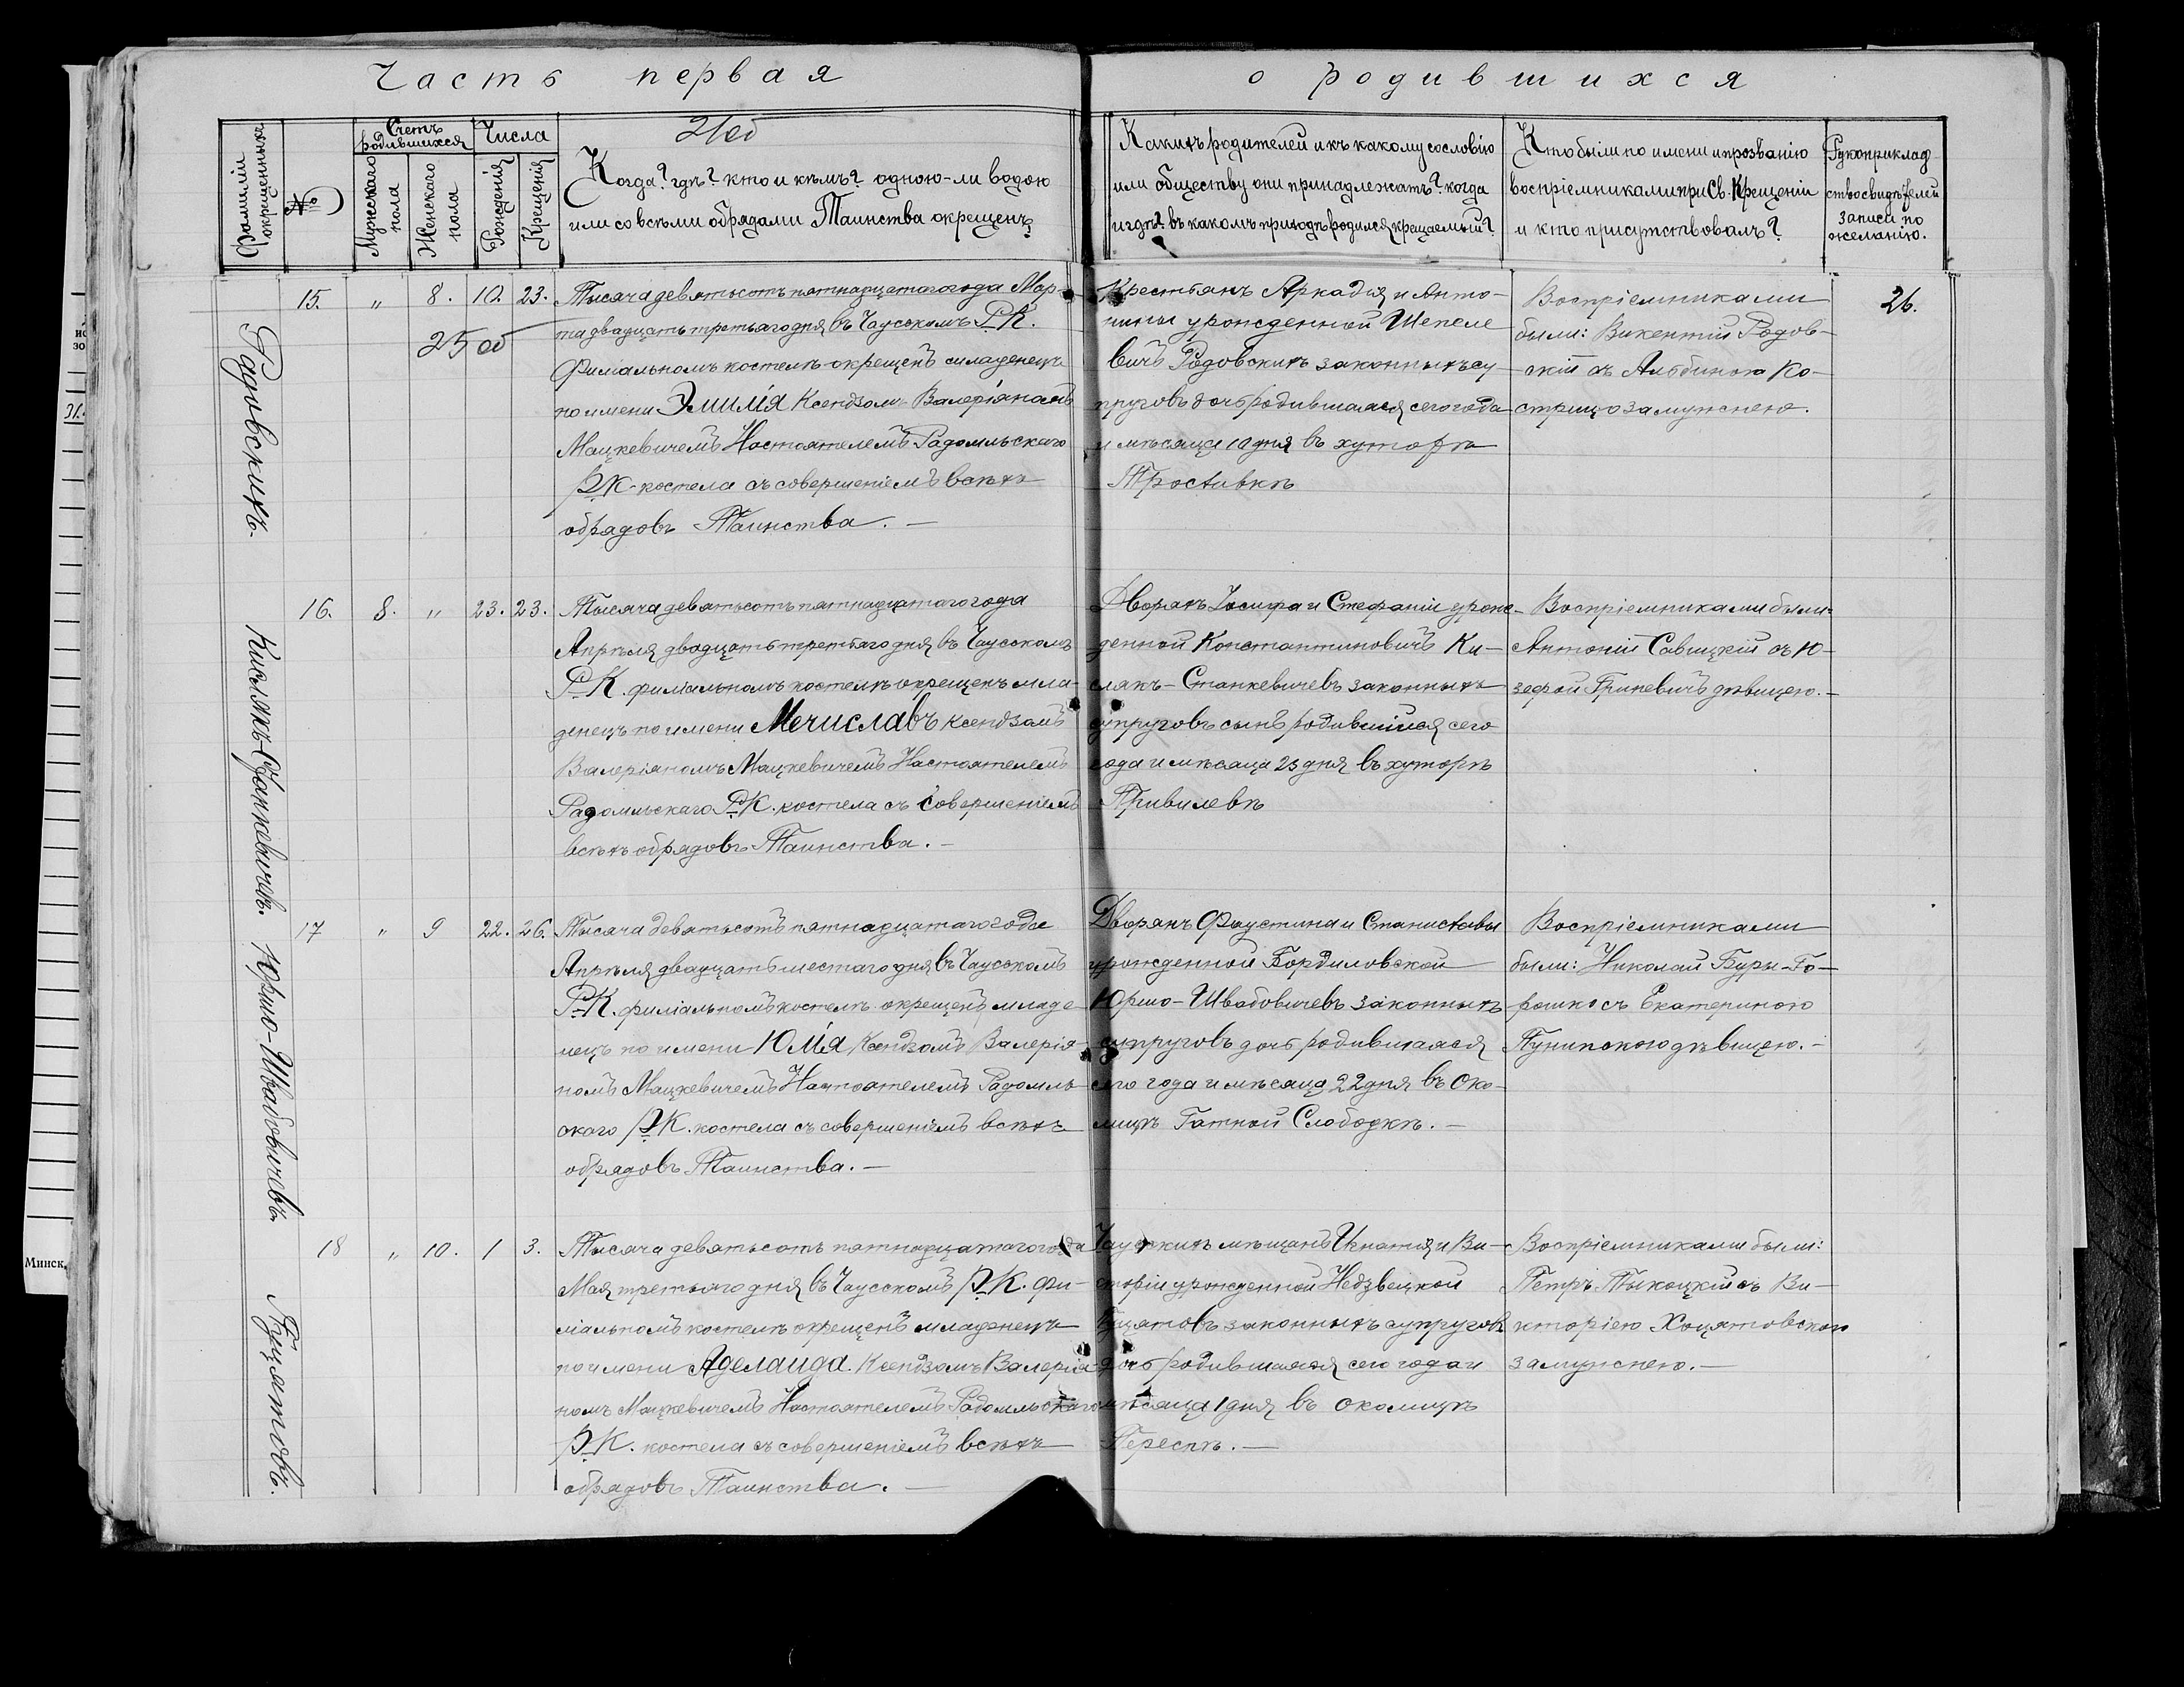 Часть первая
о родившихся
Фамиліи окрещенныхъ
№
Счетъ родившихся
Мужескаго пола
Женскаго пола
Числа
Рожденія
Крещенія
Когда? гдѣ? кто и кѣмъ? одною-ли водою
или со всѣми обрядами Таинства окрещенъ
Какихъ родителей и къ какому сословію
или обществу они принадлежатъ? когда
и гдѣ? въ какомъ приходѣ родился крещаемый?
Кто были по имени и прозванію
воспріемниками при Св. Крещеніи
и кто присутствовалъ?
Рукоприклад-
ство свидѣтелей
записи по
желанію.
Радовскихъ.
15. " 8. 10. 23.
25 об
Тысяча девятьсотъ пятнадцатаго года Мар-
та двадцать третьяго дня въ Чаусскомъ Р.К.
Филіальномъ костелѣ окрещенъ младенецъ
по имени Эмилія Ксендзомъ Валеріаномъ
Мацкевичемъ Настоятелемъ Радомльскаго
Р.К. костела съ совершеніемъ всѣхъ
обрядовъ Таинства. —
Крестьянъ Аркадія и Анто-
нины урожденной Шепеле
вичъ Радовскихъ законныхъ су-
пруговъ дочь родившаяся сего года
и мѣсяца 10 дня въ хуторѣ
Воспріемниками
были: Викентій Родов-
скій съ Альбиною Ко-
стрицо замужнею.
26.
Кислякъ-Станкевичевъ.
16. 8. " 23. 23.
Тысяча девятьсотъ пятнадцатаго года
Апрѣля двадцать третьяго дня въ Чаусскомъ
Р.К. филіальномъ костелѣ окрещенъ мла-
денецъ по имени Мечиславъ Ксендзомъ
Валеріаномъ Мацкевичемъ Настоятелемъ
Радомльскаго Р.К. костела съ совершеніемъ
всѣхъ обрядовъ Таинства. —
Дворянъ Іосифа и Стефаніи урож-
денной Константиновичъ Ки-
слякъ-Станкевичевъ законныхъ
супруговъ сынъ родившійся сего
года и мѣсяца 23 дня въ хуторѣ
Привилевѣ
Воспріемниками были:
Антоній Савицкій съ Ю-
зефой Гриневичъ дѣвицею. —
Юршо-Швабовичевъ
17 " 9 22. 26.
Тысяча девятьсотъ пятнадцатаго года
Апрѣля двадцать шестаго дня въ Чаусскомъ
Р.К. филіальномъ костелѣ окрещенъ младе
нецъ по имени Юлія Ксендзомъ Валерія-
номъ Мацкевичемъ Настоятелемъ Радомль
скаго Р.К. костела съ совершеніемъ всѣхъ
обрядовъ Таинства. —
Дворянъ Фаустина и Станиславы
урожденной Бордиловской
Юршо-Швабовичевъ законныхъ
супруговъ дочь родившаяся
сего года и мѣсяца 22 дня въ Око-
лицѣ Гатной Слободкѣ. —
Воспріемниками
были: Николай Буры-Го-
рошко съ Екатериною
дѣвицею. —
Буцятовъ.
18 " 10. 1 3.
Тысяча девятьсотъ пятнадцатаго года
Мая третьяго дня въ Чаусскомъ Р.К. фи-
ліальномъ костелѣ окрещенъ младенецъ
по имени Аделаида. Ксендзомъ Валерія-
номъ Мацкевичемъ Настоятелемъ Радомльскаго
Р.К. костела съ совершеніемъ всѣхъ
обрядовъ Таинства. —
Чаусскихъ мѣщанъ Игнатія и Ви-
кторіи урожденной Недзвецкой
Буцятовъ законныхъ супруговъ
дочь родившаяся сего года и
мѣсяца 1 дня въ околицѣ
Пересѣ. —
Воспріемниками были:
Петръ Тыкоцкій съ Ви-
кторіею Хоцятовскою
замужнею. —
Минск,